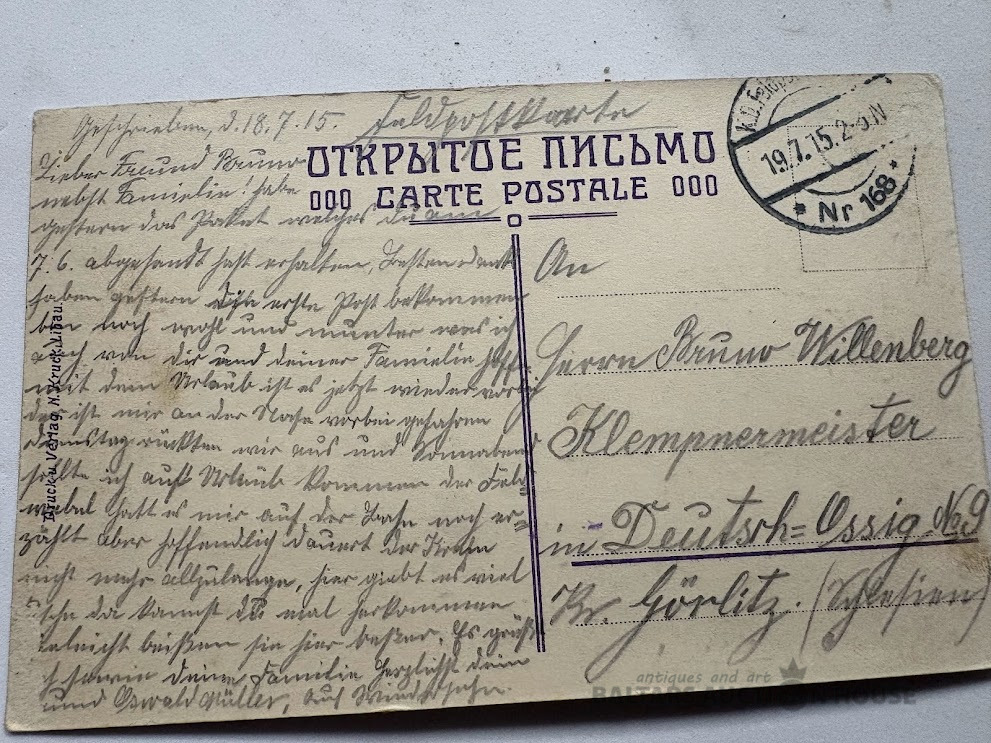 Geschrieben, d. 18.7.15. Feldpostkarte
ОТКРЫТОЕ ПИСЬМО
000 CARTE POSTALE 000
K.D. Feldpost
19.7.15. 2-3N
* Nr 168 *
Lieber Freund Bruno
nebst Famielin! habe
gestern das Paket welches du am
7.6. abgesandt hast erhalten, Besten dank
haben gestern die erste Post bekommen
bin noch wohl und munter was ich
auch von dir und deiner Famielin hoffe
mit dem Urlaub ist es jetzt wieder
ist mir an der Nase vorbei gefahren
dienstag rückten wir aus und Sonnabend
sollte ich auf Urlaub kommen der Feld-
webel hatt es mir auf der Bahn noch er-
zählt aber hoffendlich dauert der Krieg
nicht mehr allzulange, hier giebt es viel
da kannst du mal herkommen
vieleicht beißen sie hier beßer. Es grüßt
sowie deine Familie herzlichst dein
und Oswald Müller, auf Wiedersehn.
Druck u. Verlag N. Kruck, Libau.
An
Herrn Bruno Willenberg
Klempnermeister
in Deutsch=Ossig No 9
Kr. Görlitz. (Schlesien)
antiques and art
BALTARS AUCTION HOUSE